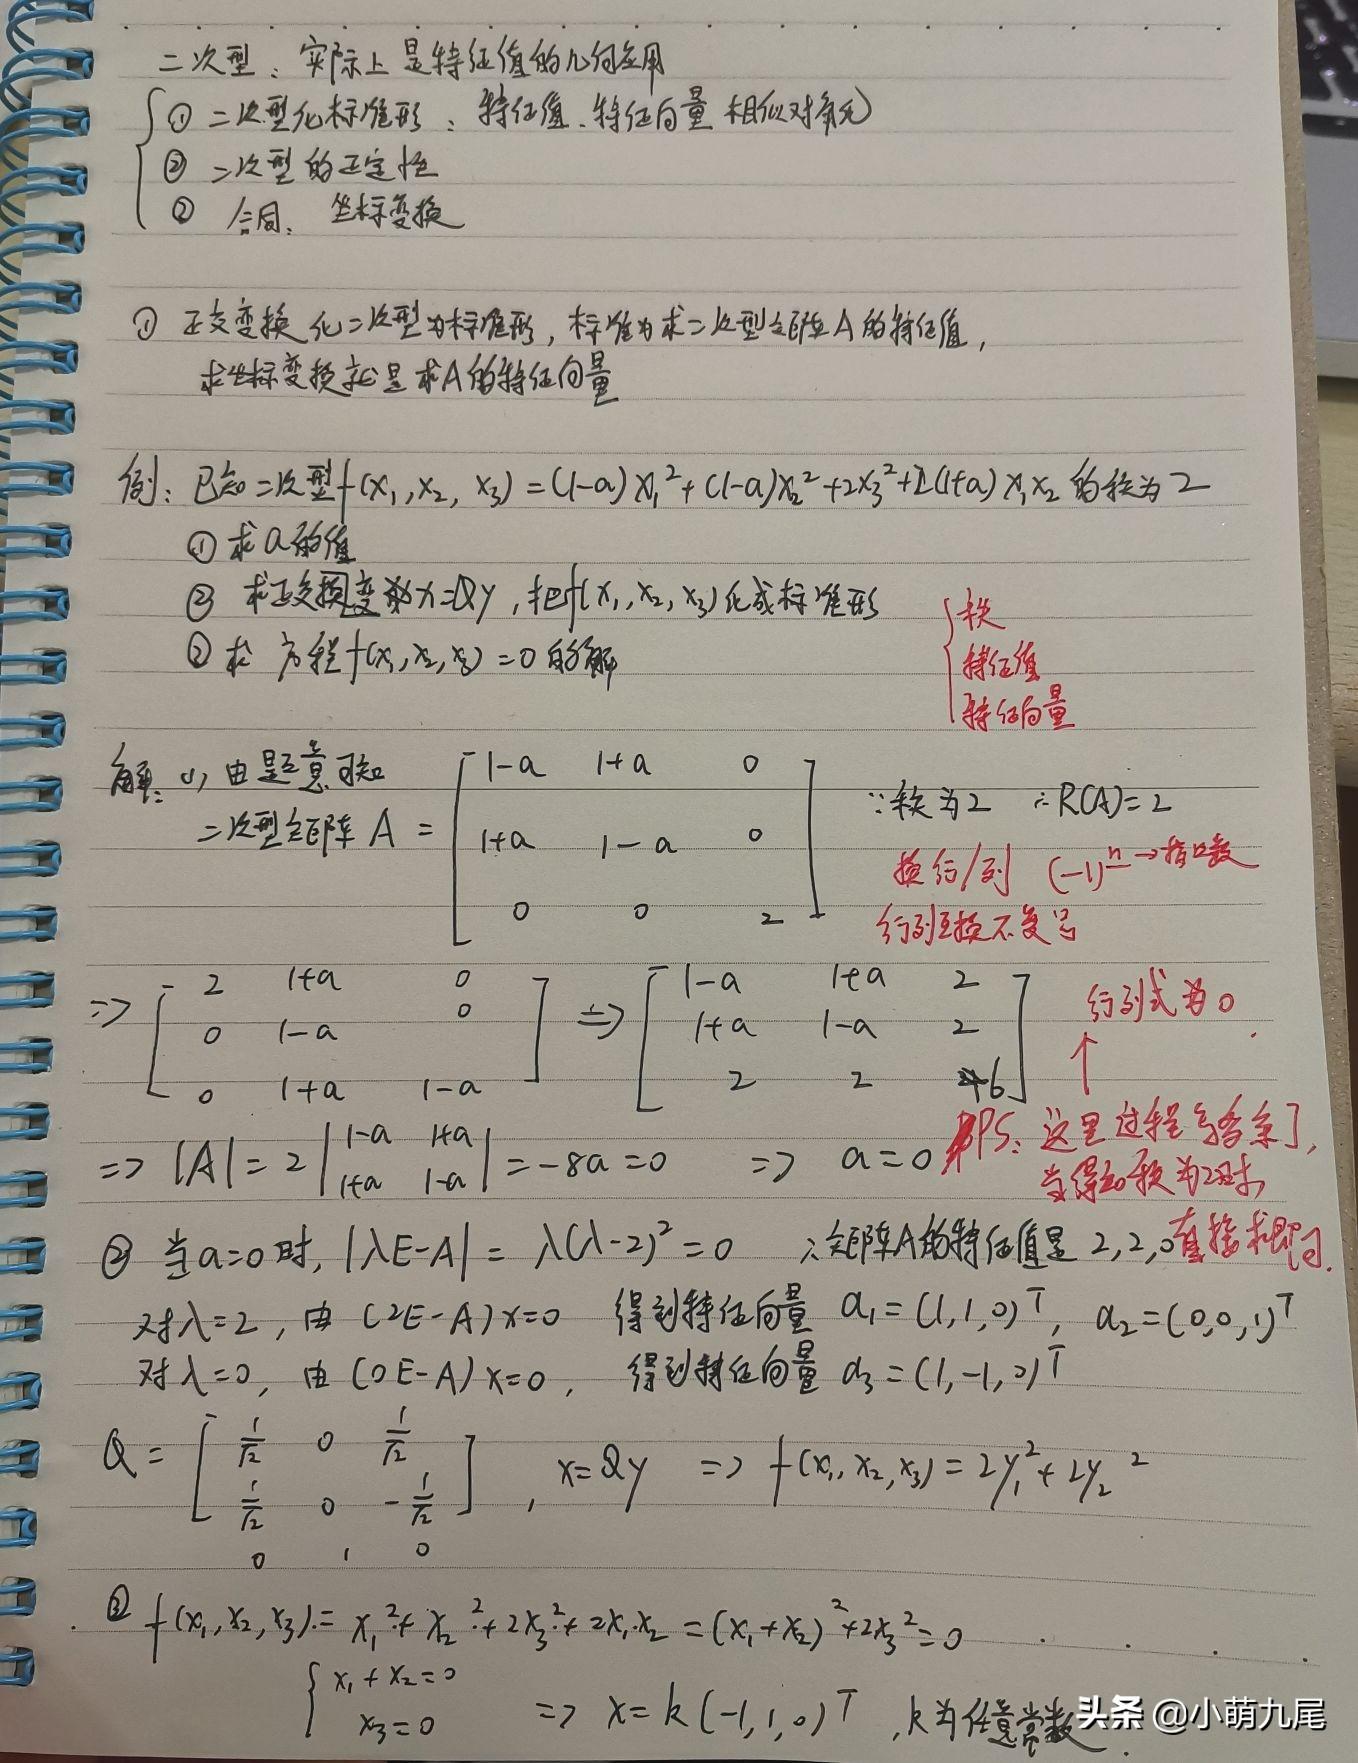 二次型：实际上是特征值的几何应用
① 二次型化标准形：特征值、特征向量 相似对角化
② 二次型的正定性
② 合同：坐标变换
① 正交变换化二次型为标准形，标准为求二次型矩阵A的特征值，
求坐标变换就是求A的特征向量
例：已知二次型f(x₁,x₂,x₃)=(1-a)x₁²+(1-a)x₂²+2x₃²+2(1+a)x₁x₂的秩为2
① 求a的值
② 求正交变换x=Qy，把f(x₁,x₂,x₃)化成标准形
② 求方程f(x₁,x₂,x₃)=0的解
秩
特征值
特征向量
解：(1) 由题意可知
二次型矩阵A= [1-a 1+a 0
1+a 1-a 0
0 0 2] ∵秩为2 ∴R(A)=2
换行/列 (-1)ⁿ→
行列互换不变号
=> [2 1+a 0
0 1-a 0
0 1+a 1-a] => [1-a 1+a 2
1+a 1-a 2
2 2 6]
行列式为0
↑
=> |A|=2|1-a 1+a
1+a 1-a|=-8a=0 => a=0
PS：这里过程写多余了，
当得知秩为2时，
直接求即可.
② 当a=0时，|λE-A|=λ(λ-2)²=0 ∴矩阵A的特征值是2,2,0
对λ=2，由(2E-A)x=0 得到特征向量 α₁=(1,1,0)ᵀ，α₂=(0,0,1)ᵀ
对λ=0，由(0E-A)x=0，得到特征向量 α₃=(1,-1,0)ᵀ
Q= [1/√2 0 1/√2
1/√2 0 -1/√2
0 1 0]，x=Qy => f(x₁,x₂,x₃)=2y₁²+2y₂²
③ f(x₁,x₂,x₃)=x₁²+x₂²+2x₃²+2x₁x₂=(x₁+x₂)²+2x₃²=0
x₁+x₂=0
x₃=0 => x=k(-1,1,0)ᵀ，k为任意常数
头条 @小萌九尾